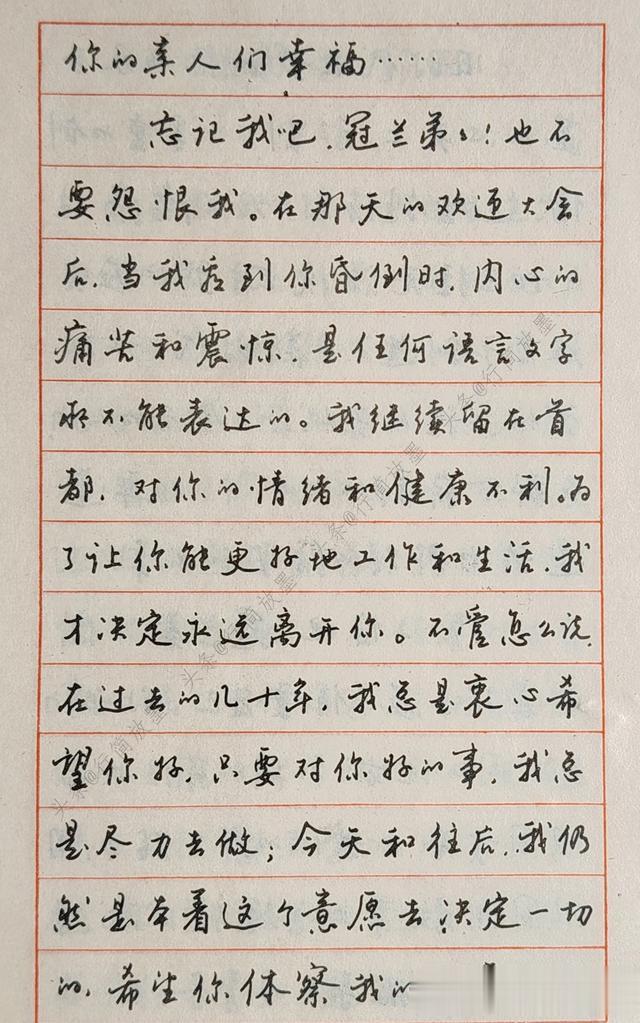 你的亲人们幸福……
忘记我吧，冠兰弟々！也不
要怨恨我。在那天的欢迎大会
后，当我看到你昏倒时，内心的
痛苦和震惊，是任何语言文字
所不能表达的。我继续留在首
都，对你的情绪和健康不利。为
了让你能更好地工作和生活，我
才决定永远离开你。不管怎么说，
在过去的几十年，我总是衷心希
望你好，只要对你好的事，我总
是尽力去做；今天和往后，我仍
然是本着这个意愿去决定一切
的，希望你体察我的
头条@行简放墨
头条@行简放墨
头条@行简放墨